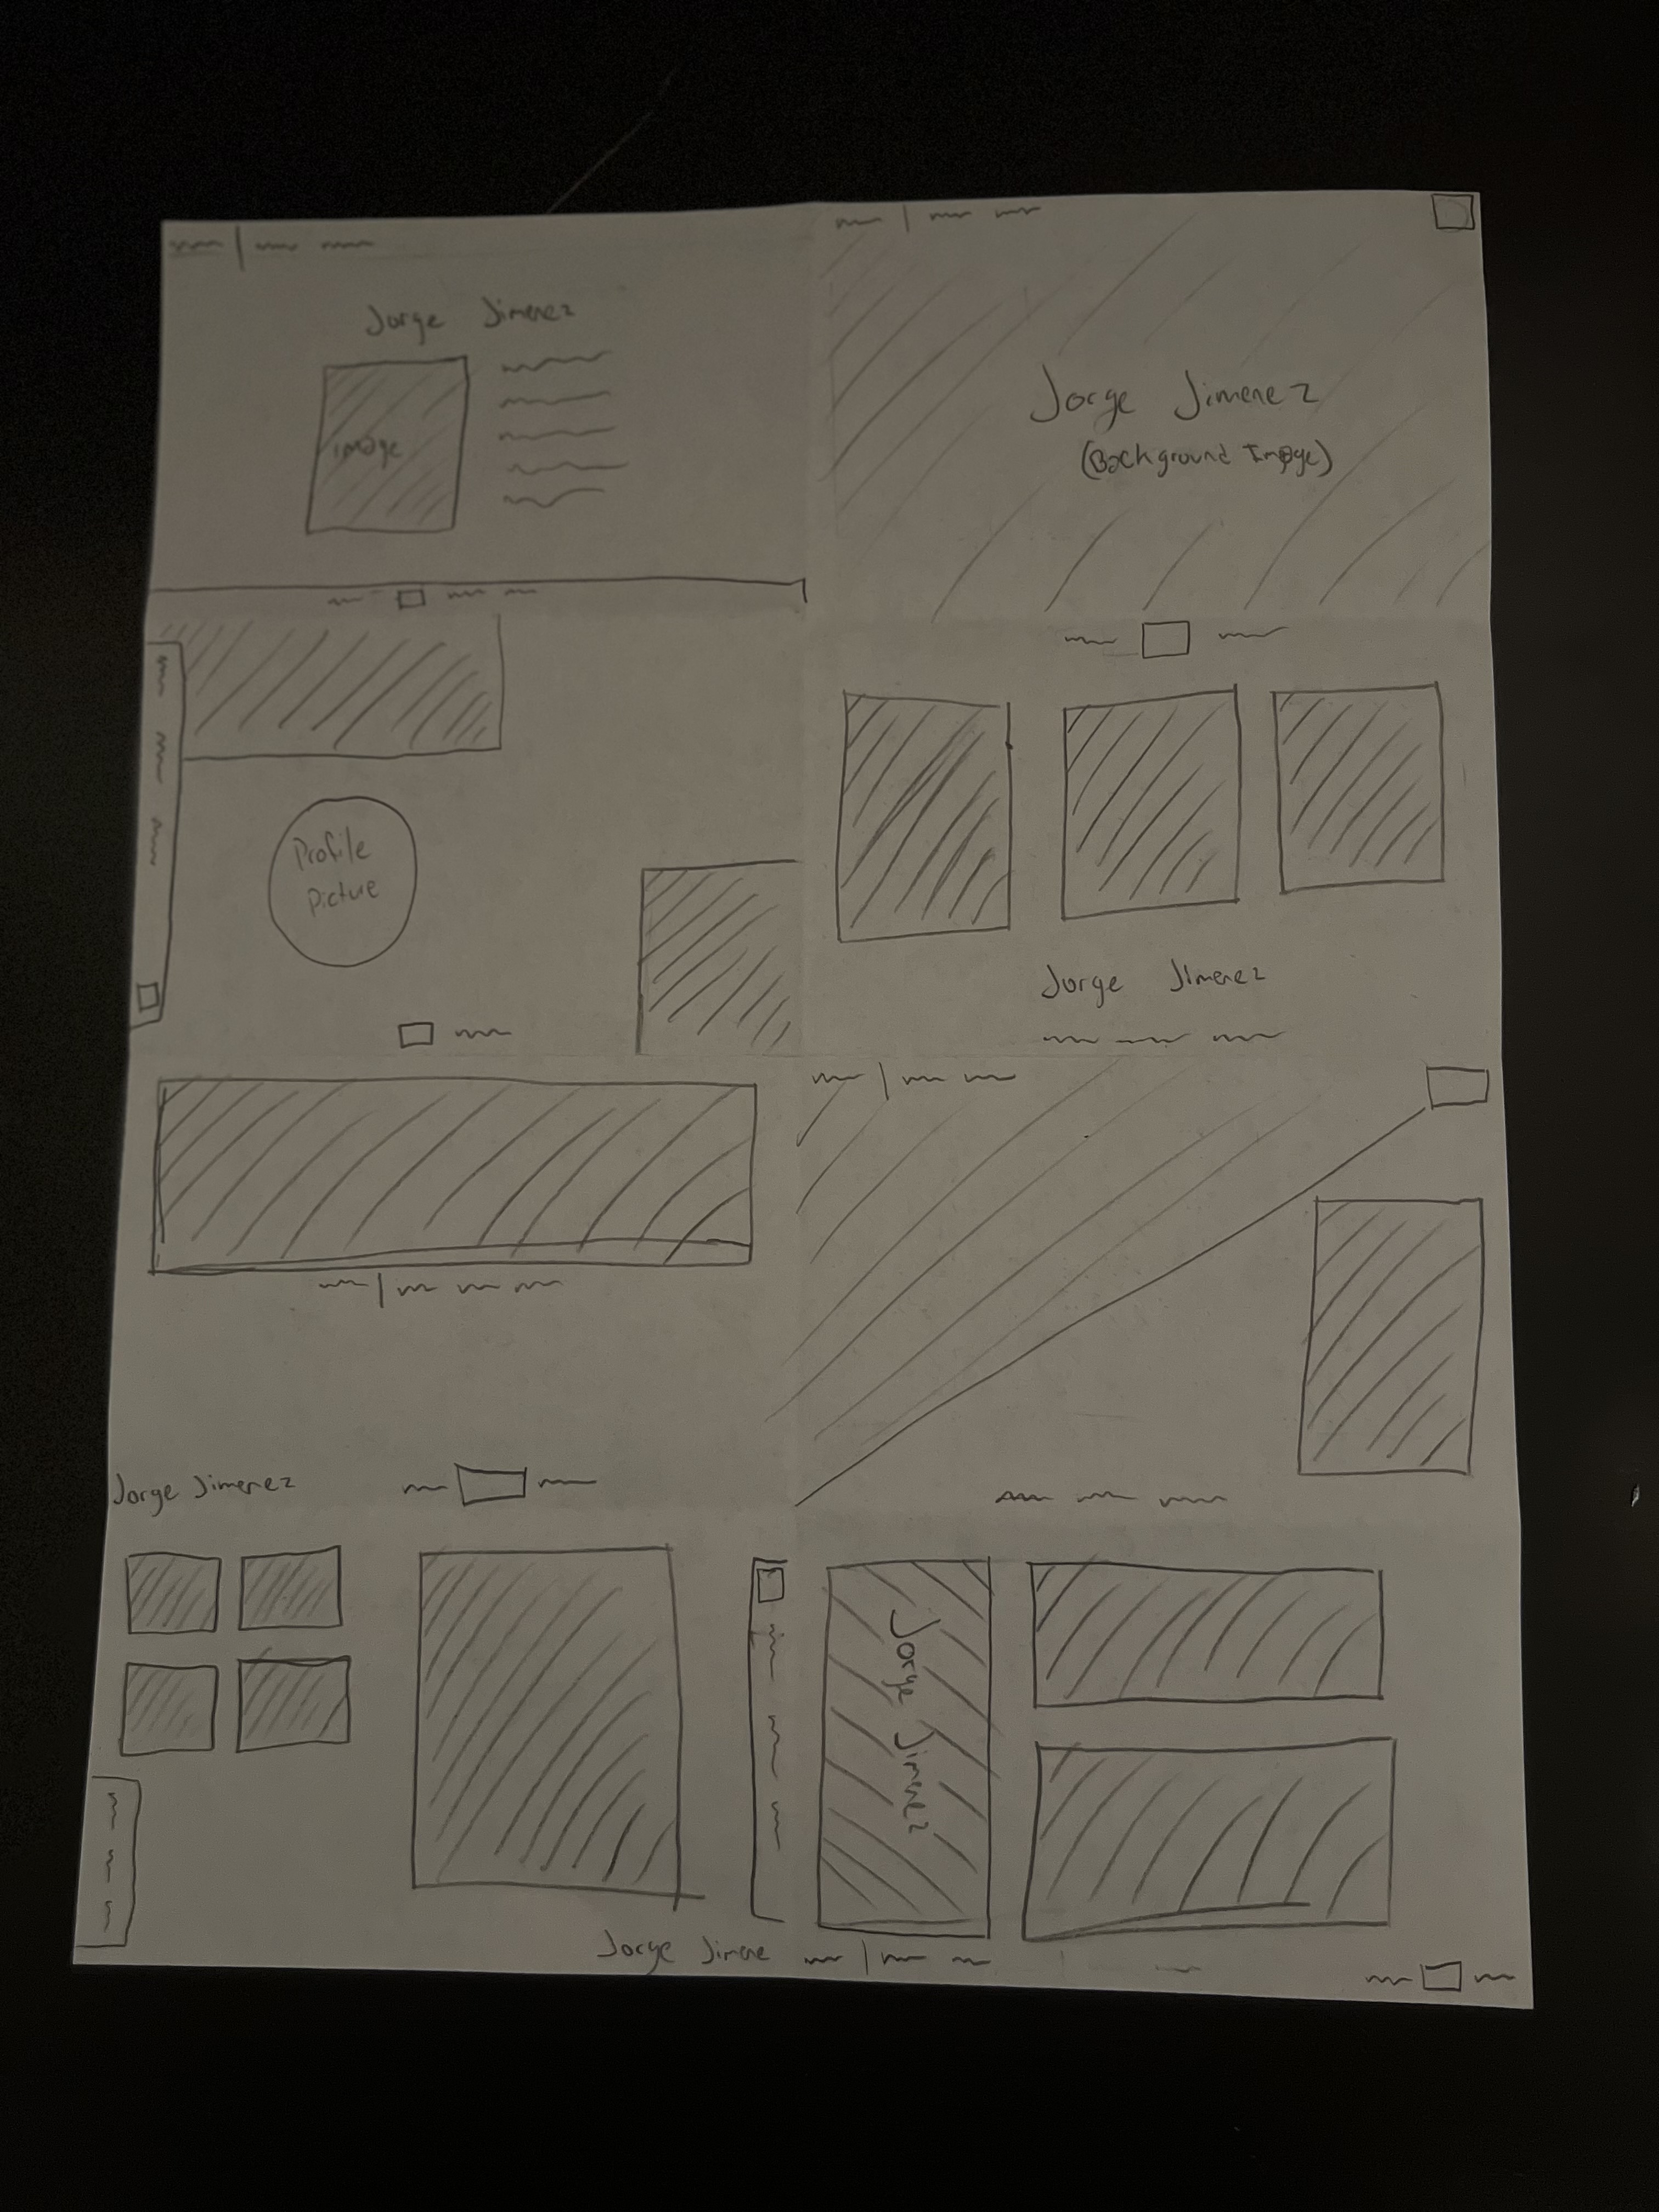 Jorge Jimenez
image
Jorge Jimenez
(Background Image)
Profile
Picture
Jorge Jimenez
Jorge Jimenez
Jorge Jimenez
Jorge Jimene